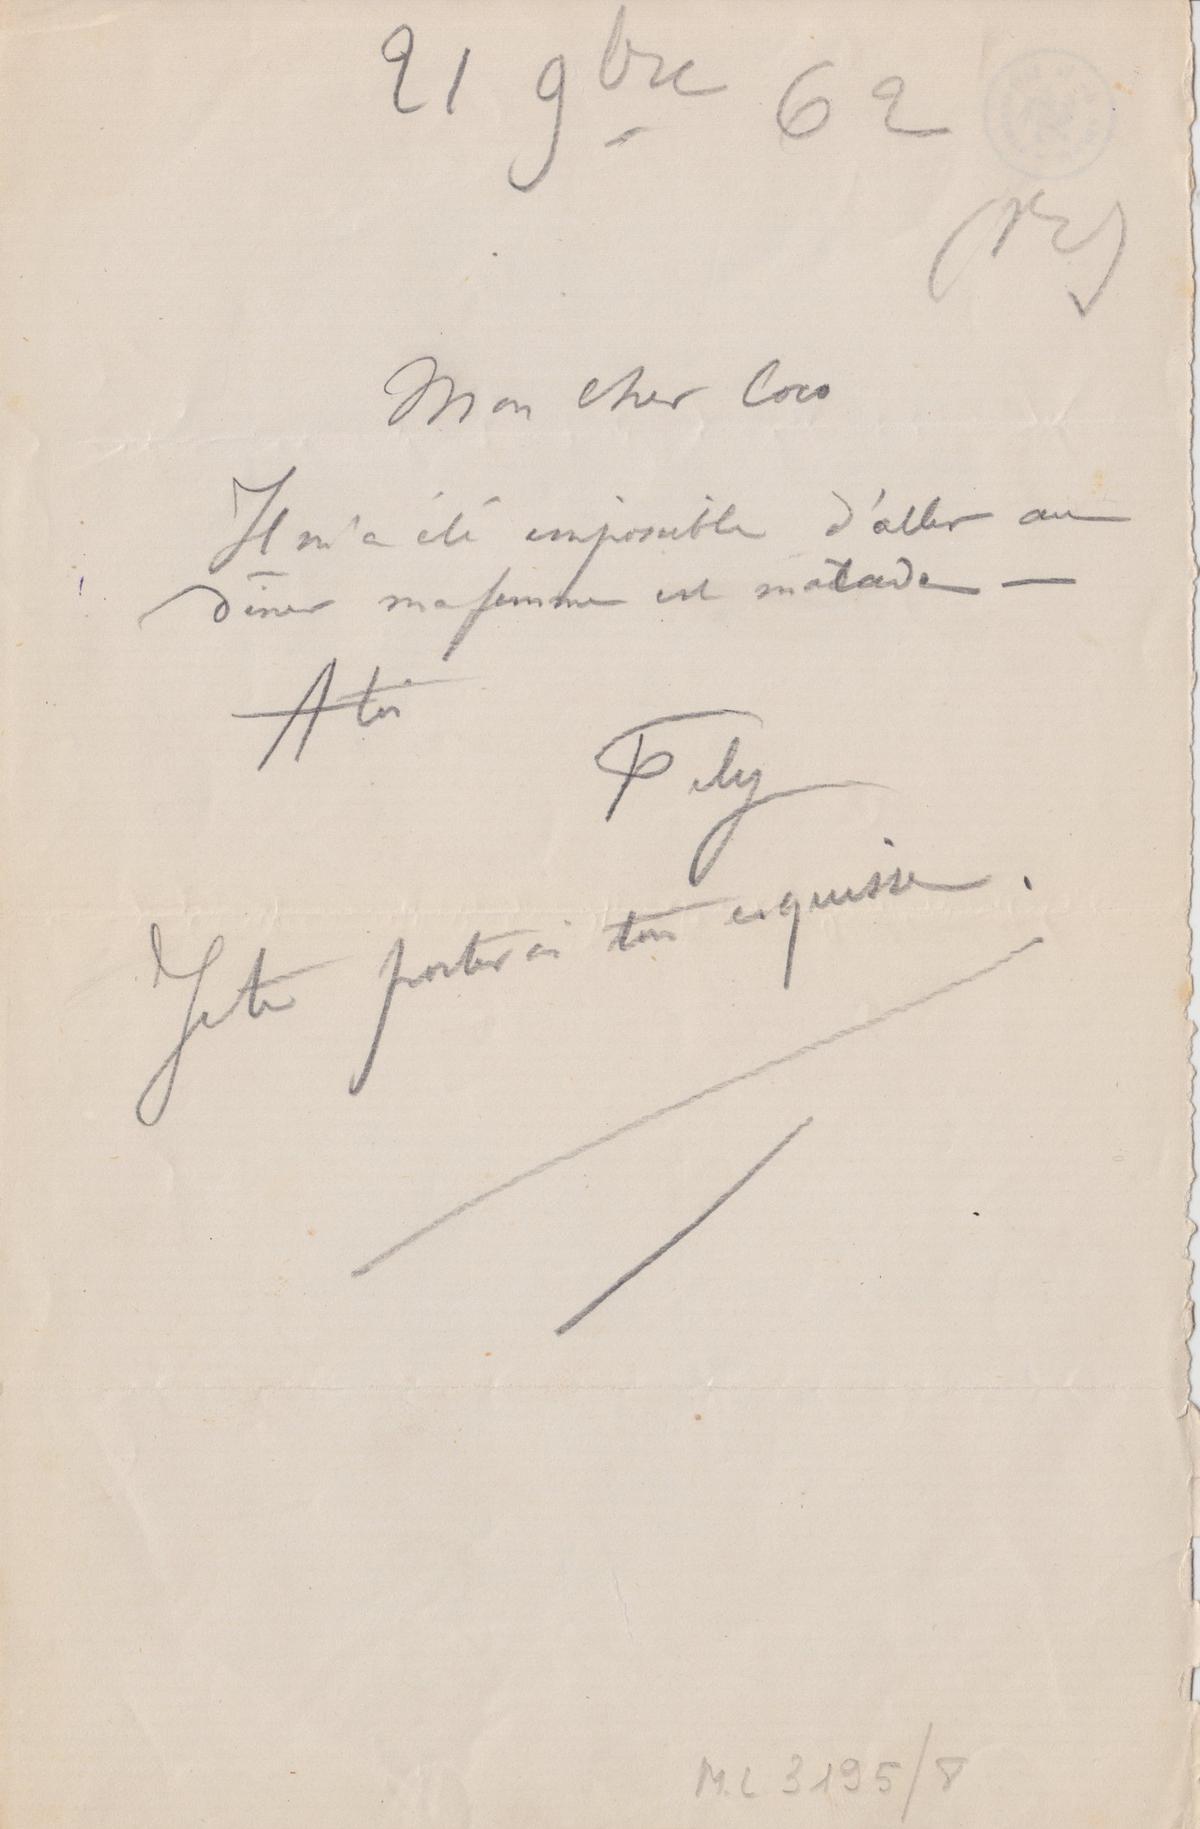 21 9bre 62
Mon cher Coco
Il m'a été impossible d'aller au
dîner ma femme est malade —
A toi
Fély
Je te porterai ton esquisse.
M.L 3195/8